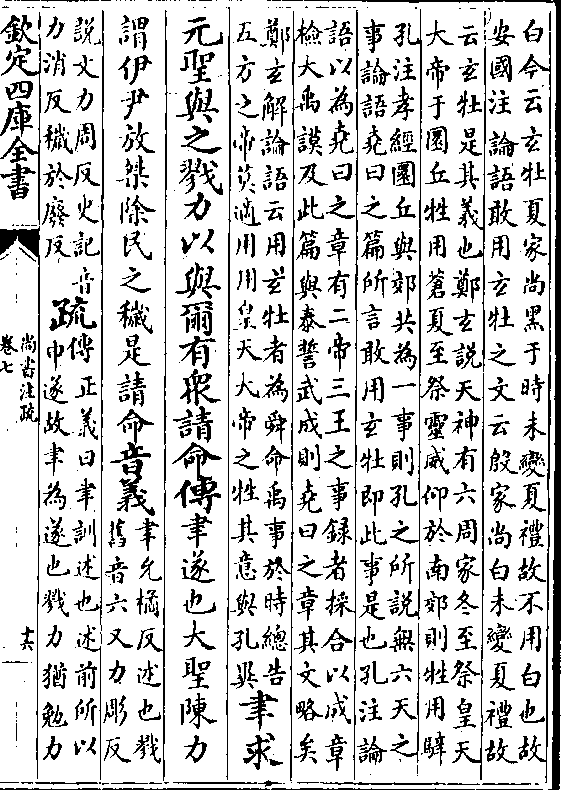 白今云玄牡夏家尚黑于時未變夏禮故不用白也故
安國注論語敢用玄牡之文云殷家尚白未變夏禮故
云玄牡是其義也鄭玄說天神有六周家冬至祭皇天
大帝于圜丘牲用蒼夏至祭靈威仰於南郊則牲用騂
孔注孝經圜丘與郊共為一事則孔之所說無六天之
事論語堯曰之篇所言敢用玄牡即此事是也孔注論
語以為堯曰之章有二帝三王之事録者採合以成章
檢大禹謨及此篇與泰誓武成則堯曰之章其文略矣
鄭玄解論語云用玄牡者為舜命禹事於時總告
五方之帝莫適用用皇天大帝之牲其意與孔異
聿求
元聖與之戮力以與爾有衆請命傳聿遂也大聖陳力
謂伊尹放桀除民之穢是請命音義
聿允橘反述也戮
舊音六又力彫反
説文力周反史記音
力消反穢於廢反
疏
傳正義曰聿訓述也述前所以
申遂故聿為遂也戮力猶勉力
欽定四庫全書
尚書注疏
卷七
十六